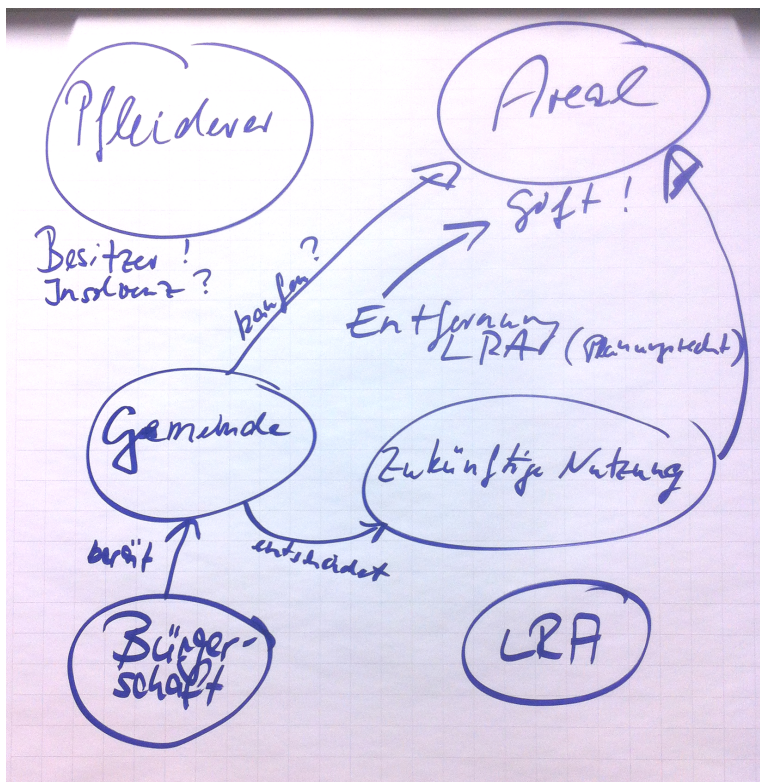 Pfleiderer
Areal
Gift!
Besitzer!
Insolvenz?
kaufen?
Entfernung
LRA (Planungsrecht)
Gemeinde
Zukünftige Nutzung
berät
entscheidet
Bürger-
schaft
LRA